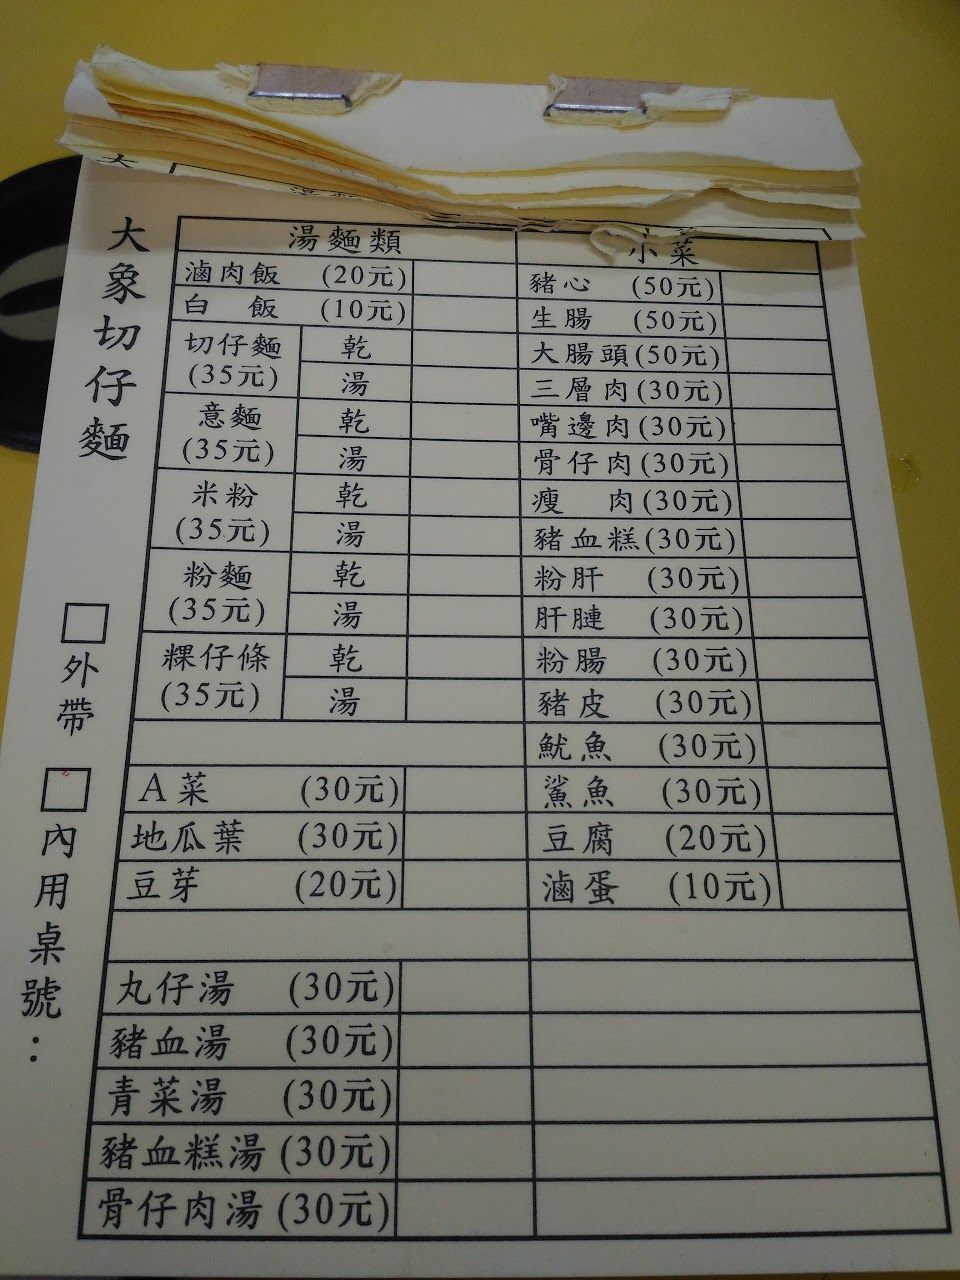 大象切仔麵
外帶
內用桌號：
湯麵類
滷肉飯 (20元)
白 飯 (10元)
切仔麵 (35元)
乾
湯
意麵 (35元)
乾
湯
米粉 (35元)
乾
湯
粉麵 (35元)
乾
湯
粿仔條 (35元)
乾
湯
A菜 (30元)
地瓜葉 (30元)
豆芽 (20元)
丸仔湯 (30元)
豬血湯 (30元)
青菜湯 (30元)
豬血糕湯 (30元)
骨仔肉湯 (30元)
小菜
豬心 (50元)
生腸 (50元)
大腸頭 (50元)
三層肉 (30元)
嘴邊肉 (30元)
骨仔肉 (30元)
瘦 肉 (30元)
豬血糕 (30元)
粉肝 (30元)
肝腱 (30元)
粉腸 (30元)
豬皮 (30元)
魷魚 (30元)
鯊魚 (30元)
豆腐 (20元)
滷蛋 (10元)